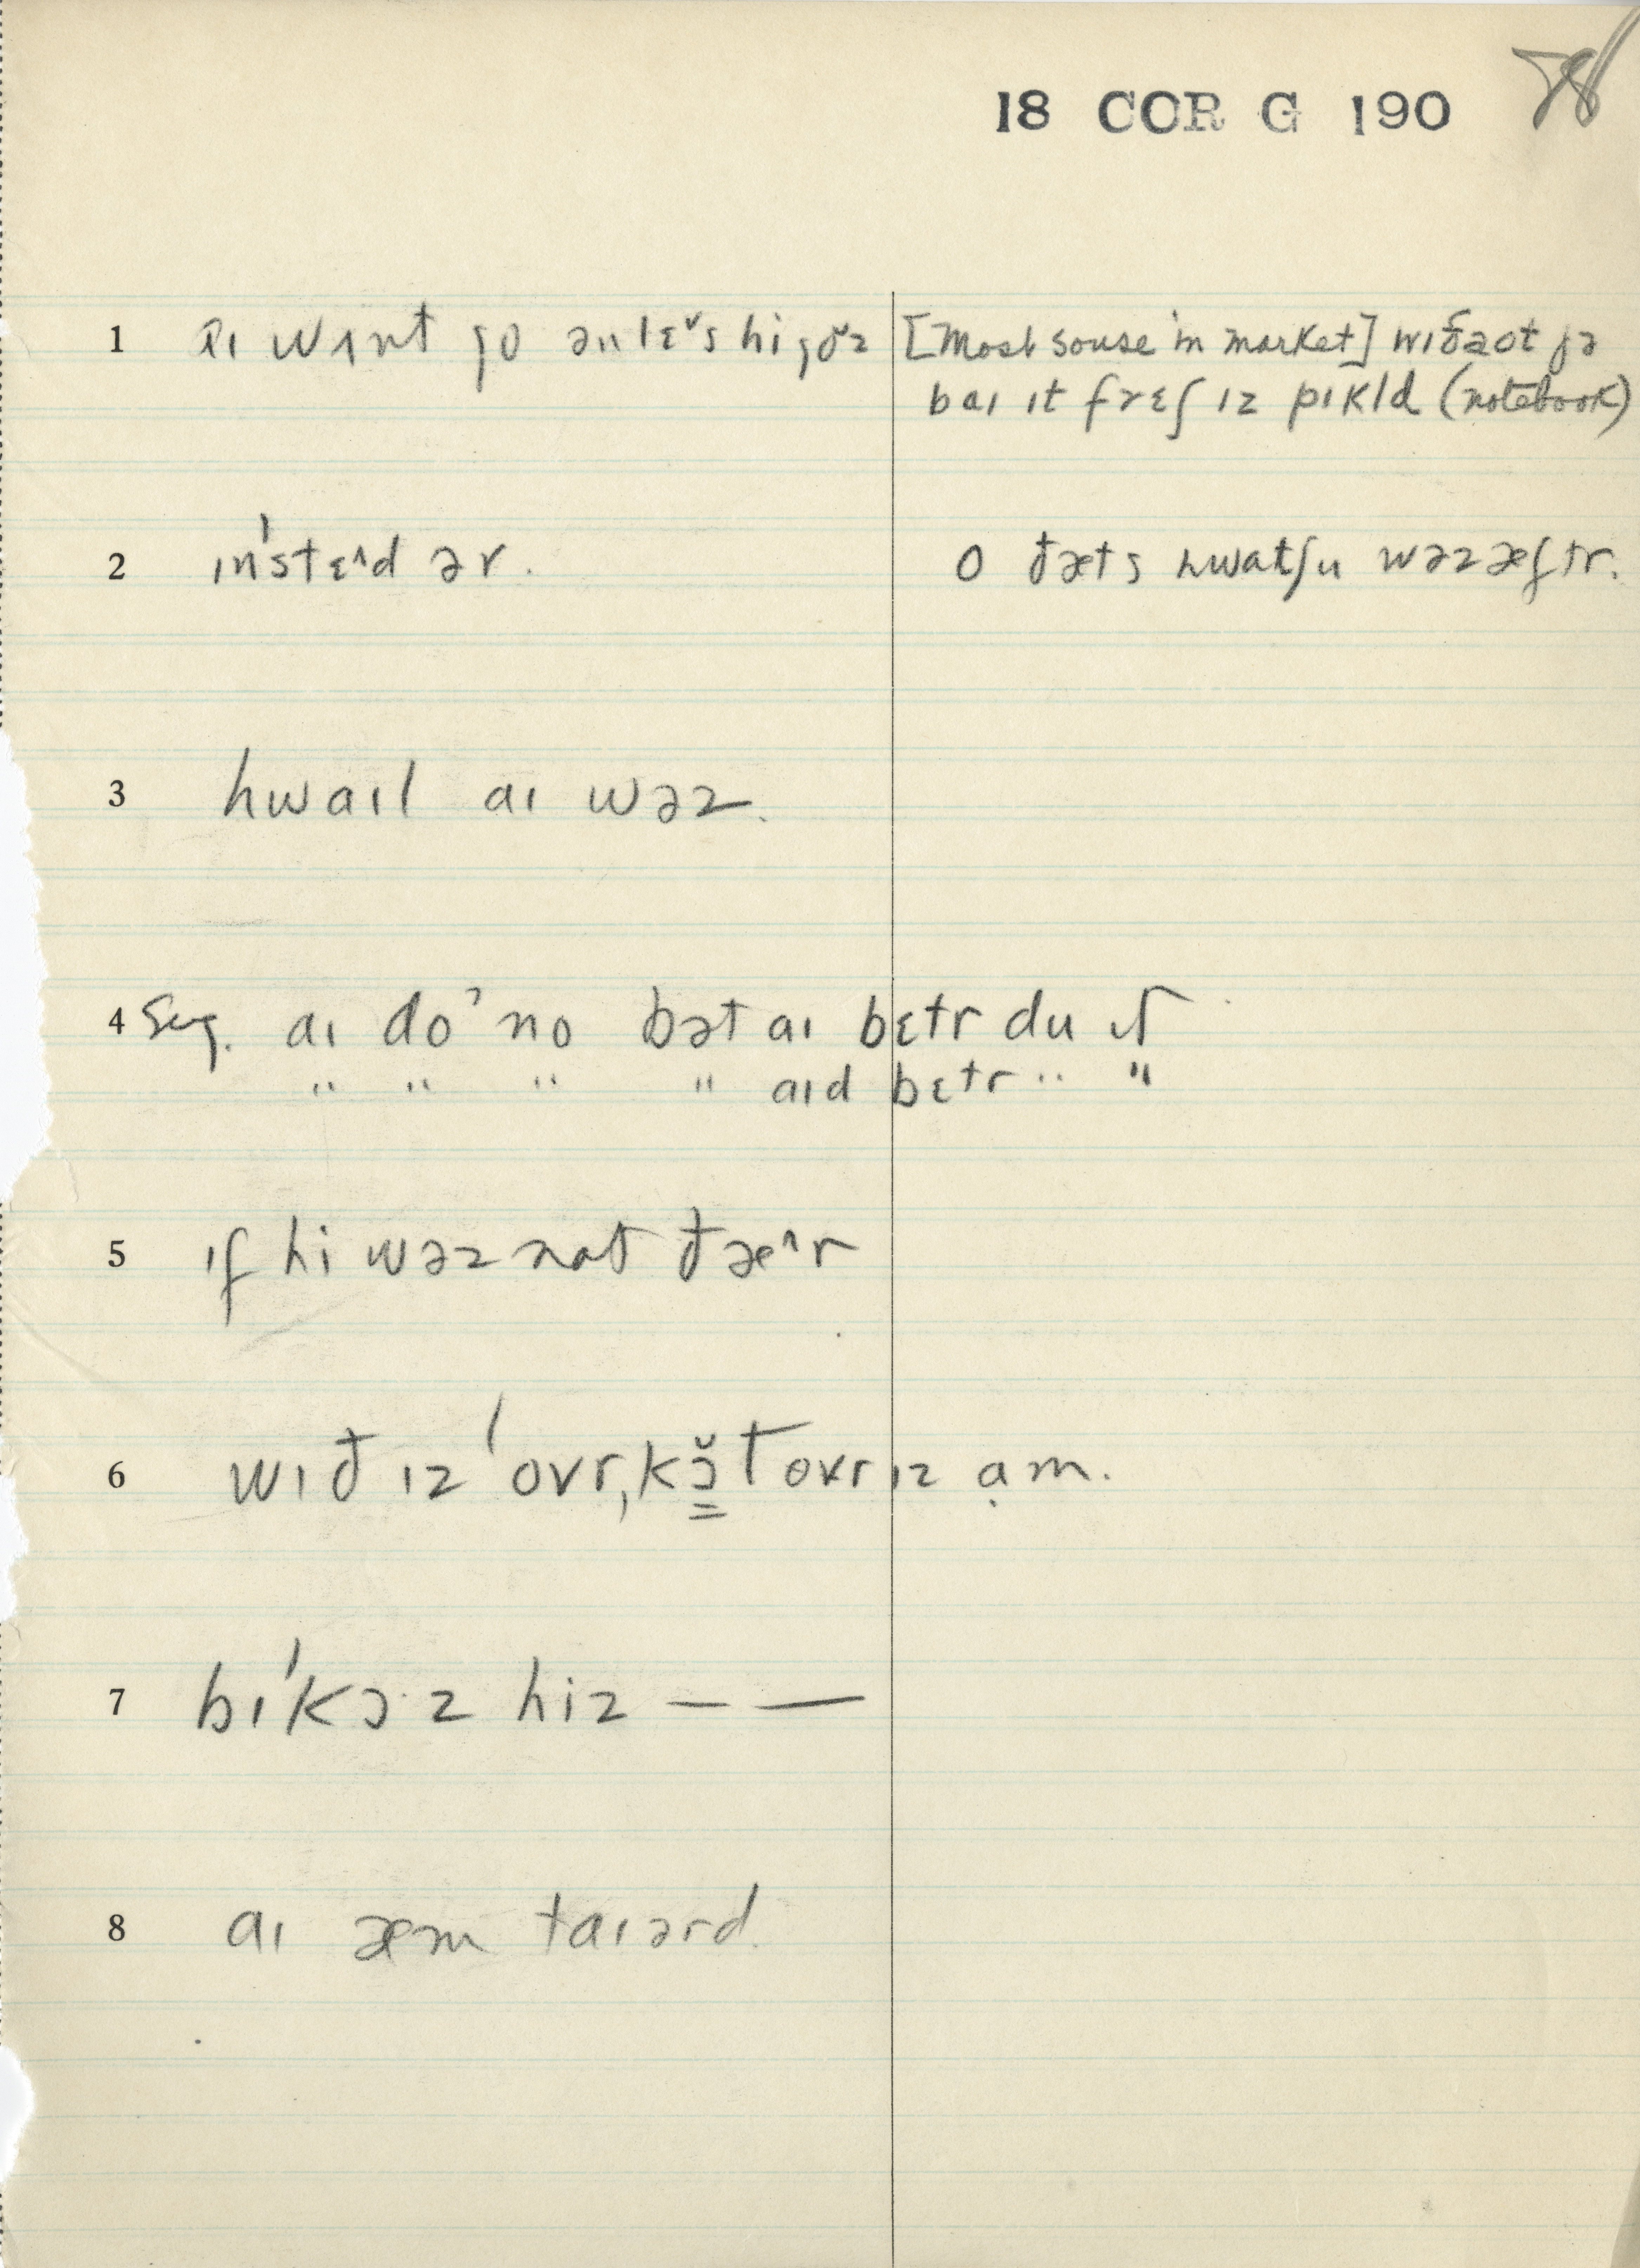 18 COR G 190 78
1 aɪ wʌnt ɡo ənlɛ˅s hi ɡo˅z [Most souse in market] wɪðaot jə
baɪ ɪt frɛʃ ɪz pɪkld (notebook)
2 ɪn'stɛ˄d ər. o ðæts hwatʃu wəz æftr.
3 hwaɪl aɪ wəz.
4 Sug. aɪ do˒no bət aɪ bɛtr du ɪt
" " " " aɪd bɛtr " "
5 ɪf hi wəz nat ðæ˄r
6 wɪð ɪz 'ovr,kɔ̳̆t ovr ɪz ạm.
7 bɪ'kɔ·z hiz — —
8 aɪ æm taɪərd.